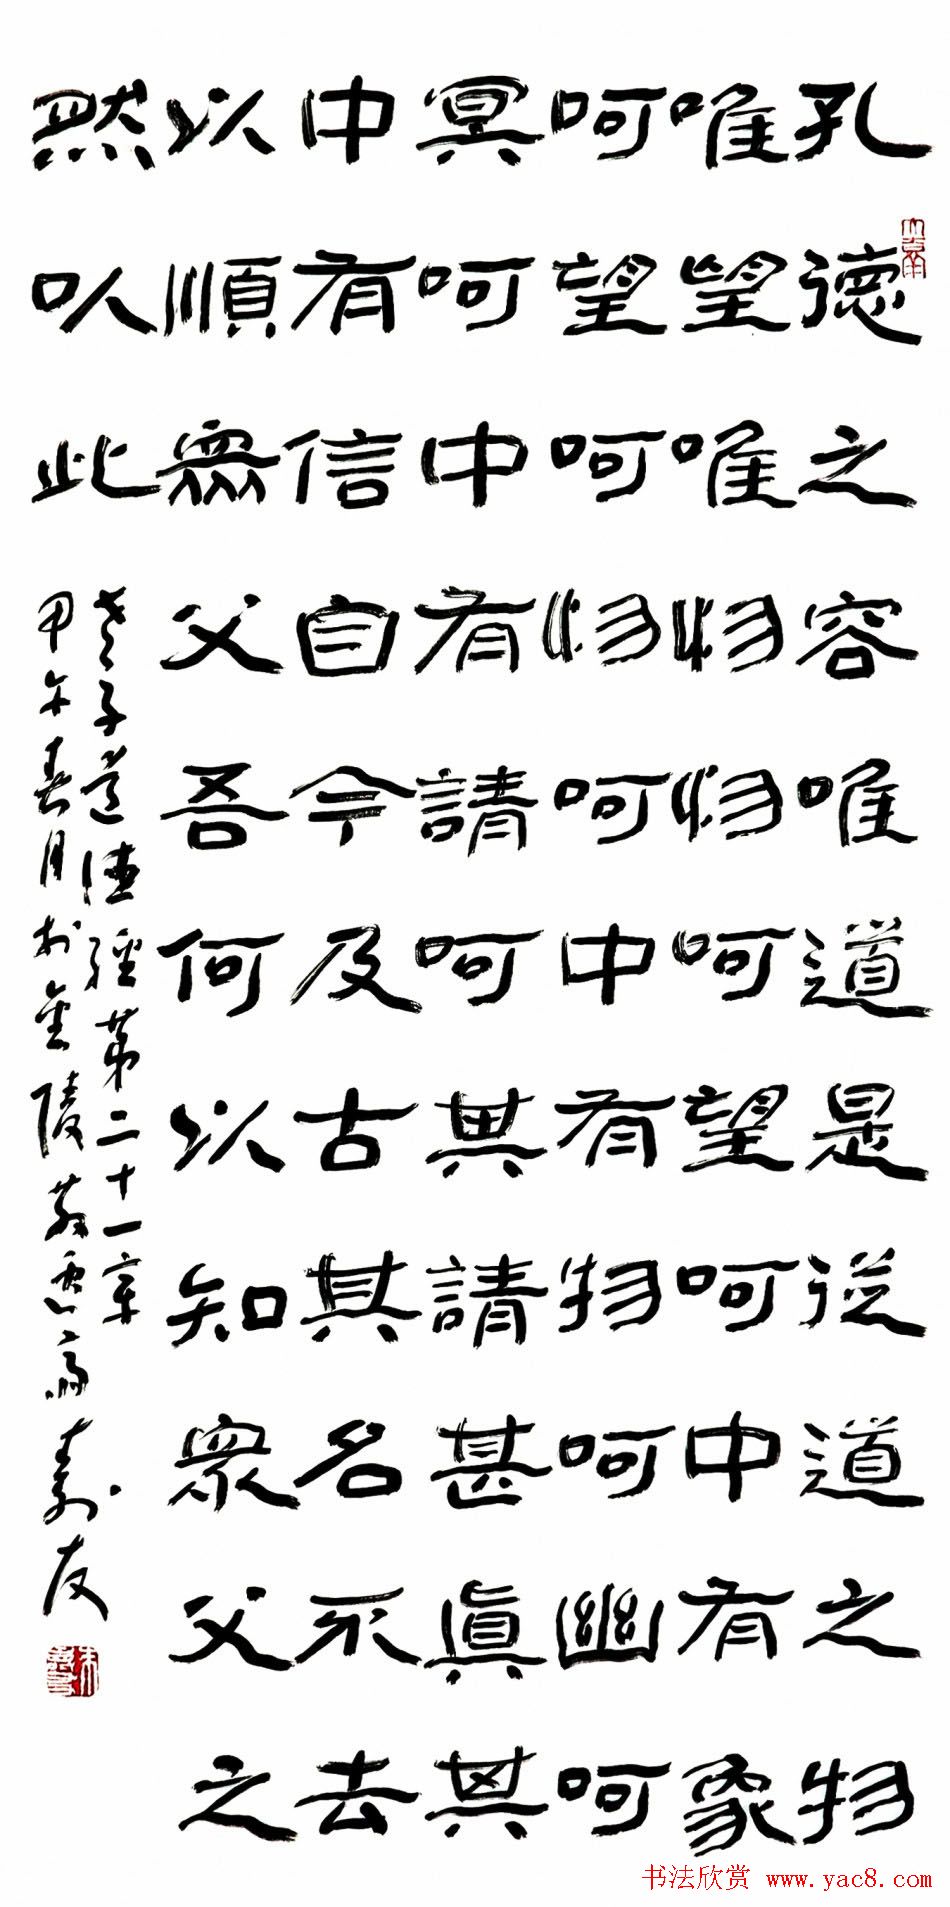 孔德之容唯道是從道之物
唯望唯惚惚呵望呵中有象
呵望呵惚呵中有物呵幽呵
冥呵中有請呵其請甚眞其
中有信自今及古其名不去
以順眾父吾何以知眾父之
然以此
老子道德經第二十一章
甲午春月於金陵齋壽友
书法欣赏 www.yac8.com